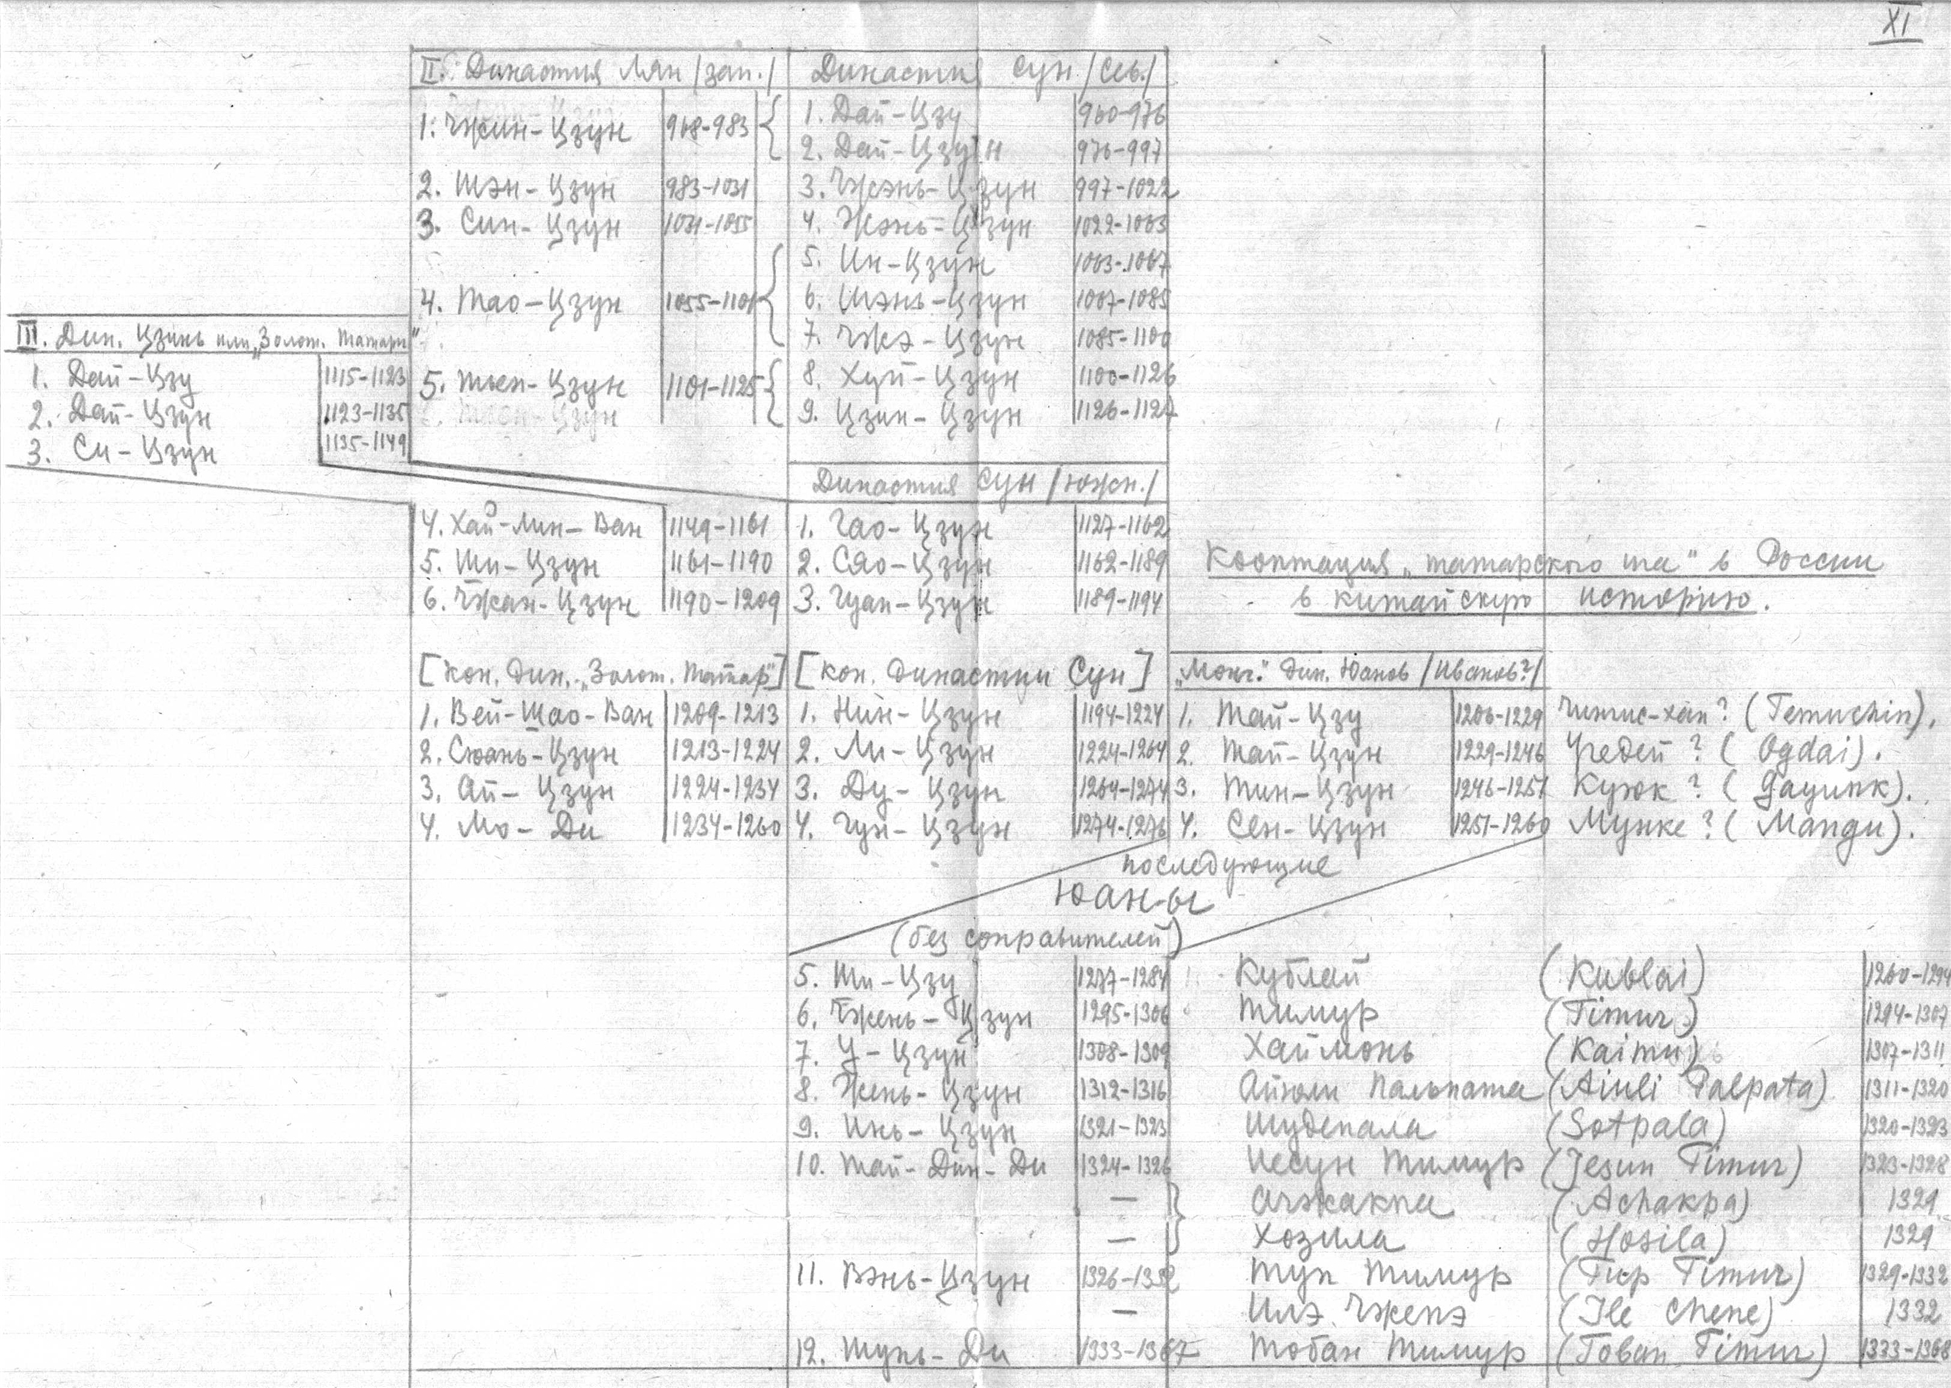 XI
II. Династия Лян /зап./ Династия Сун /Сев./
1. Чжин-Цзун 968-983 1. Дай-Цзу 960-976
2. Дай-Цзун 976-997
2. Шэн-Цзун 983-1031 3. Чжэнь-Цзун 997-1022
3. Син-Цзун 1031-1055 4. Жэнь-Цзун 1022-1063
5. Ин-Цзун 1063-1067
4. Тао-Цзун 1055-1101 6. Шэнь-Цзун 1067-1085
III. Дин. Цзинь или „Золот. Татары" 7. Чжэ-Цзун 1085-1100
1. Дай-Цзу 1115-1123 5. Тьен-Цзун 1101-1125 8. Хуй-Цзун 1100-1126
2. Дай-Цзун 1123-1135 9. Цзин-Цзун 1126-1127
3. Си-Цзун 1135-1149
Династия Сун /Южн./
4. Хай-Лин-Ван 1149-1161 1. Гао-Цзун 1127-1162
5. Ши-Цзун 1161-1190 2. Сяо-Цзун 1162-1189
6. Чжан-Цзун 1190-1209 3. Гуан-Цзун 1189-1194
Кооптация „татарского ига" в России
в китайскую историю.
[кон. Дин. „Золот. Татар"] [кон. Династии Сун] „Монг." Дин. Юанов /Иванов?/
1. Вей-Шао-Ван 1209-1213 1. Нин-Цзун 1194-1224 1. Тай-Цзу 1206-1229 Чингис-хан? (Temuchin).
2. Сюань-Цзун 1213-1224 2. Ли-Цзун 1224-1264 2. Тай-Цзун 1229-1246 Угедей? (Ogdai).
3. Ай-Цзун 1224-1234 3. Ду-Цзун 1264-1274 3. Тин-Цзун 1246-1251 Куюк? (Gayunk).
4. Мо-Ди 1234-1260 4. Гун-Цзун 1274-1276 4. Сен-Цзун 1251-1260 Мунке? (Mangu).
последующие
Юан-ы
(без соправителей)
5. Ши-Цзу 1277-1284 Кублай (Kublai) 1260-1294
6. Чжень-Цзун 1295-1306 Тимур (Timur) 1294-1307
7. У-Цзун 1308-1309 Хаймонь (Kaimu) 1307-1311
8. Жень-Цзун 1312-1316 Айюли Пальпата (Aiuli Palpata) 1311-1320
9. Инь-Цзун 1321-1323 Шудепала (Sotpala) 1320-1323
10. Тай-Дин-Ди 1324-1326 Иесун Тимур (Jesun Timur) 1323-1328
— Ачжакпа (Achakpa) 1329
— Хозила (Hosila) 1329
11. Вэнь-Цзун 1326-1332 Туп Тимур (Tup Timur) 1329-1332
— Илэ Чжепэ (Ile Chene) 1332
12. Шунь-Ди 1333-1367 Тобан Тимур (Toban Timur) 1333-1368